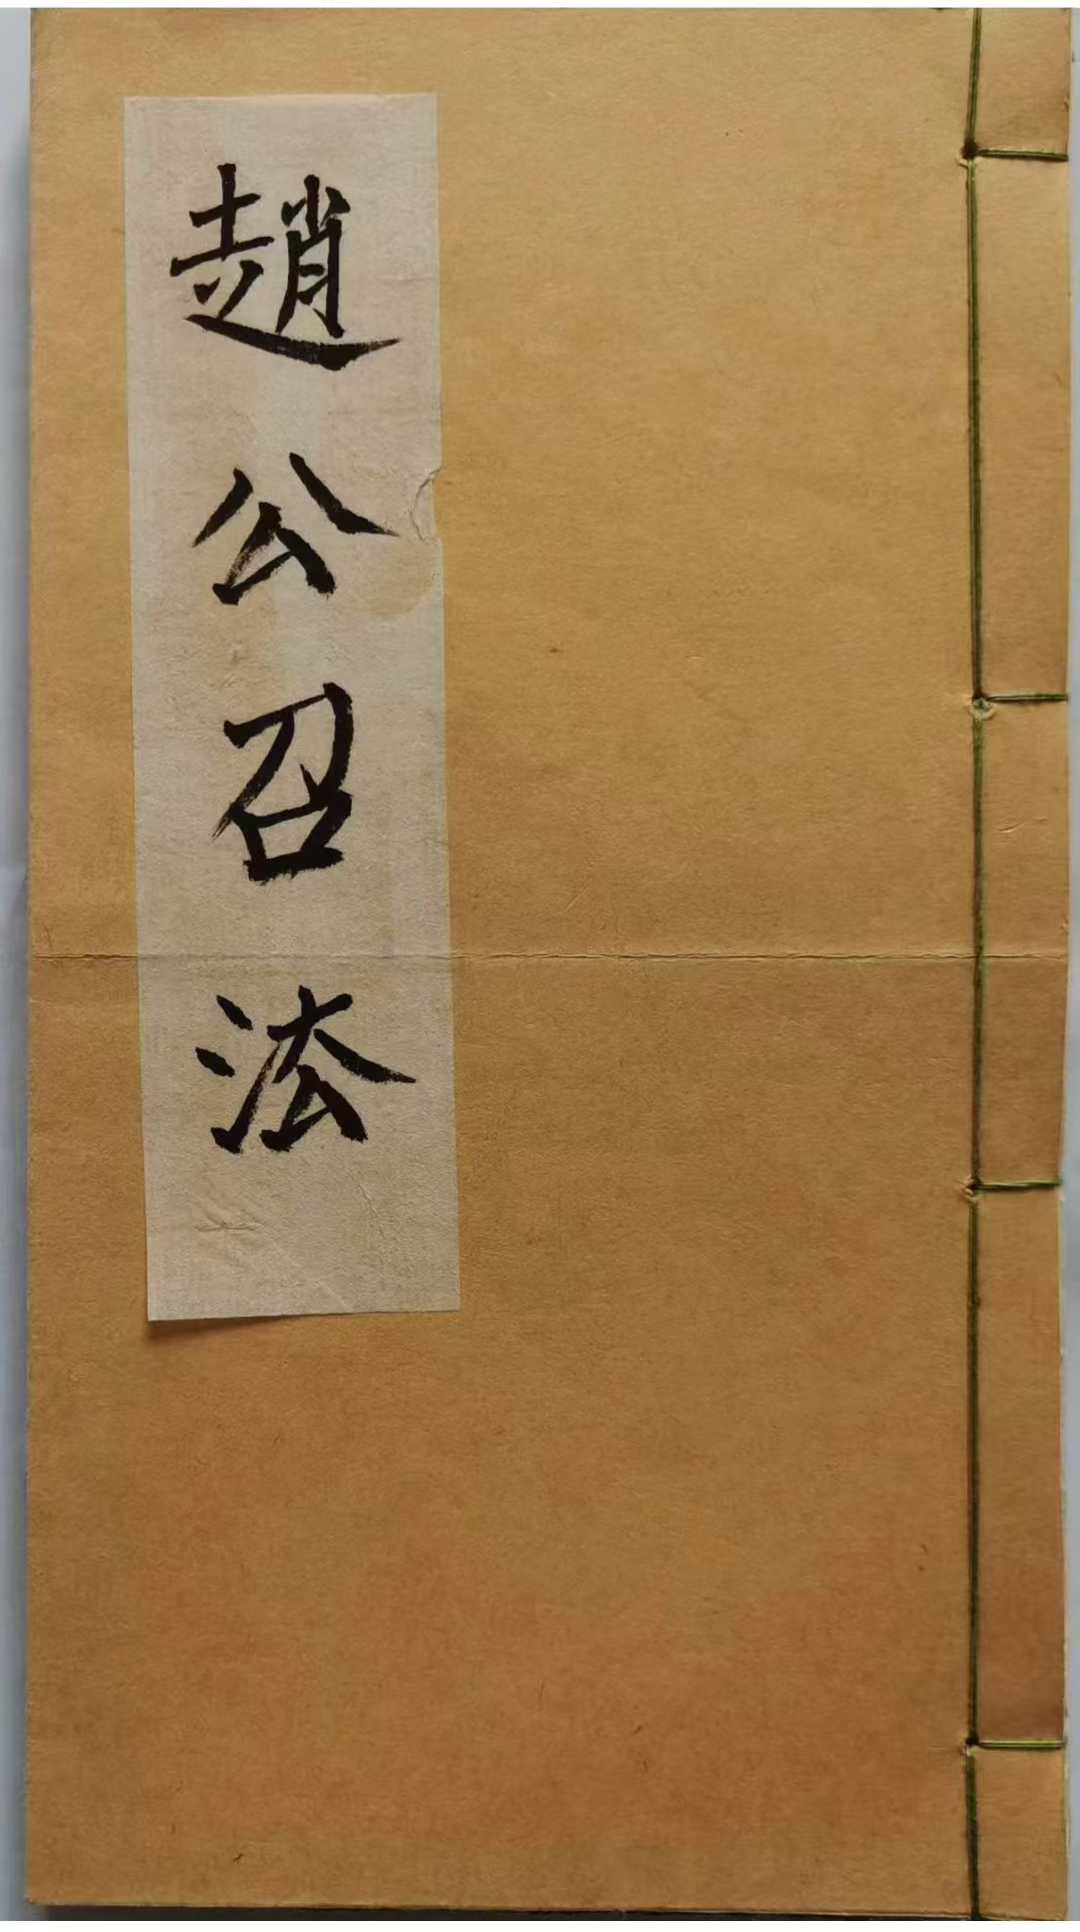 趙公召法